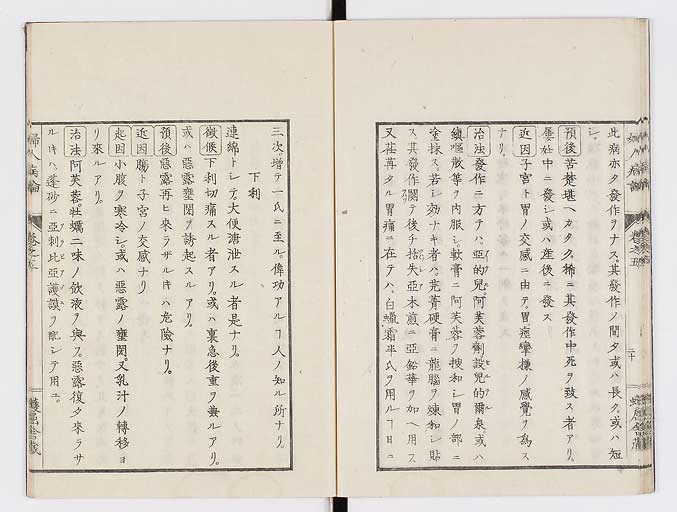 此病亦タ發作ヲナス。其發作ノ間タ或ハ長ク。或ハ短
シ。
預後苦楚堪ヘカタク。稀ニ其發作中死ヲ致ス者アリ。
屢妊中ニ發シ或ハ產後ニ發ス
近因子宮ト胃ノ交感ニ由テ。胃痙攣様ノ感覺ヲ為ス
ナリ。
治法發作ニ方テハ。亞的兒阿芙蓉劑設兒的爾泉。或ハ
纈嘔散等ヲ內服シ。軟膏ニ阿芙蓉ヲ搜和シ胃ノ部ニ
塗抹ス。若シ効ナキ者ハ。莨菪硬膏ニ龍腦ヲ煉和シ貼
ス。其發作關テ後チ括失亞木煎ニ亞鉛華ヲ加ヘ用ス
又荏苒タル胃痛ニ在テハ。白蠟霜半氏ヲ用ルヿ日ニ
婦人病論
卷之五
二十
三次。增テ一氏ニ至ル。偉功アルヿ人ノ知ル所ナリ。
下利
連綿トシテ。大便溏泄スル者是ナリ。
徵候下利切痛スル者アリ。或ハ裏急後重ヲ兼ルアリ。
或ハ惡露壅閉ヲ誘起スルアリ。
預後惡露再ヒ來ラザルキハ危險ナリ。
近因膓ト子宮ノ交感ナリ
起因小腹ヲ寒冷シ。或ハ惡露ノ壅閉。又乳汁ノ轉移ヨ
リ來ルアリ。
治法阿芙蓉。牡蠣二味ノ飲液ヲ與フ。惡露復タ來ラサ
ルキハ。蓬砂ニ亞刺比亞護謨ヲ配シテ用ユ。
婦人病論
卷之五